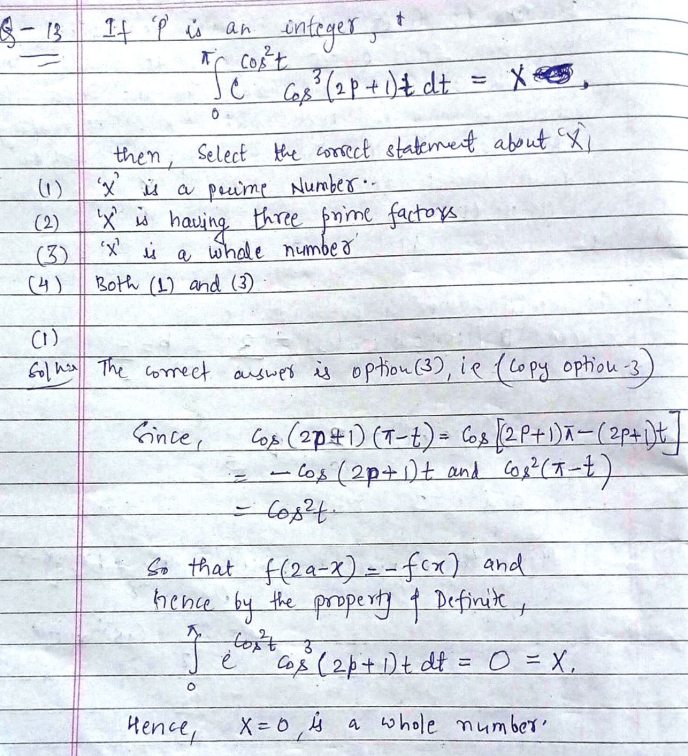 Q-13 If 'p' is an integer,
π∫0 e^cos²t cos³(2p+1)t dt = X,
then, Select the correct statement about 'X'
(1) 'X' is a prime Number.
(2) 'X' is having three prime factors
(3) 'X' is a whole number
(4) Both (1) and (3)
(1)
Solna The correct answer is option (3), ie (copy option-3)
Since, Cos (2p+1) (π-t) = Cos [2P+1)π-(2p+1)t]
= - Cos (2p+1)t and Cos²(π-t)
= Cos²t.
So that f(2a-x) = -f(x) and
hence by the property of Definite,
π∫0 e^cos²t cos³(2p+1)t dt = 0 = X.
Hence, X=0, is a whole number.